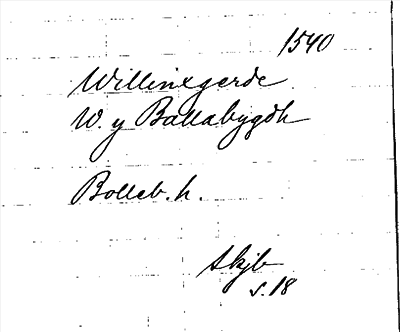 1540
Willinxgerde
W. y Ballabygdh
Bolleb. h.
Skjb
s. 18